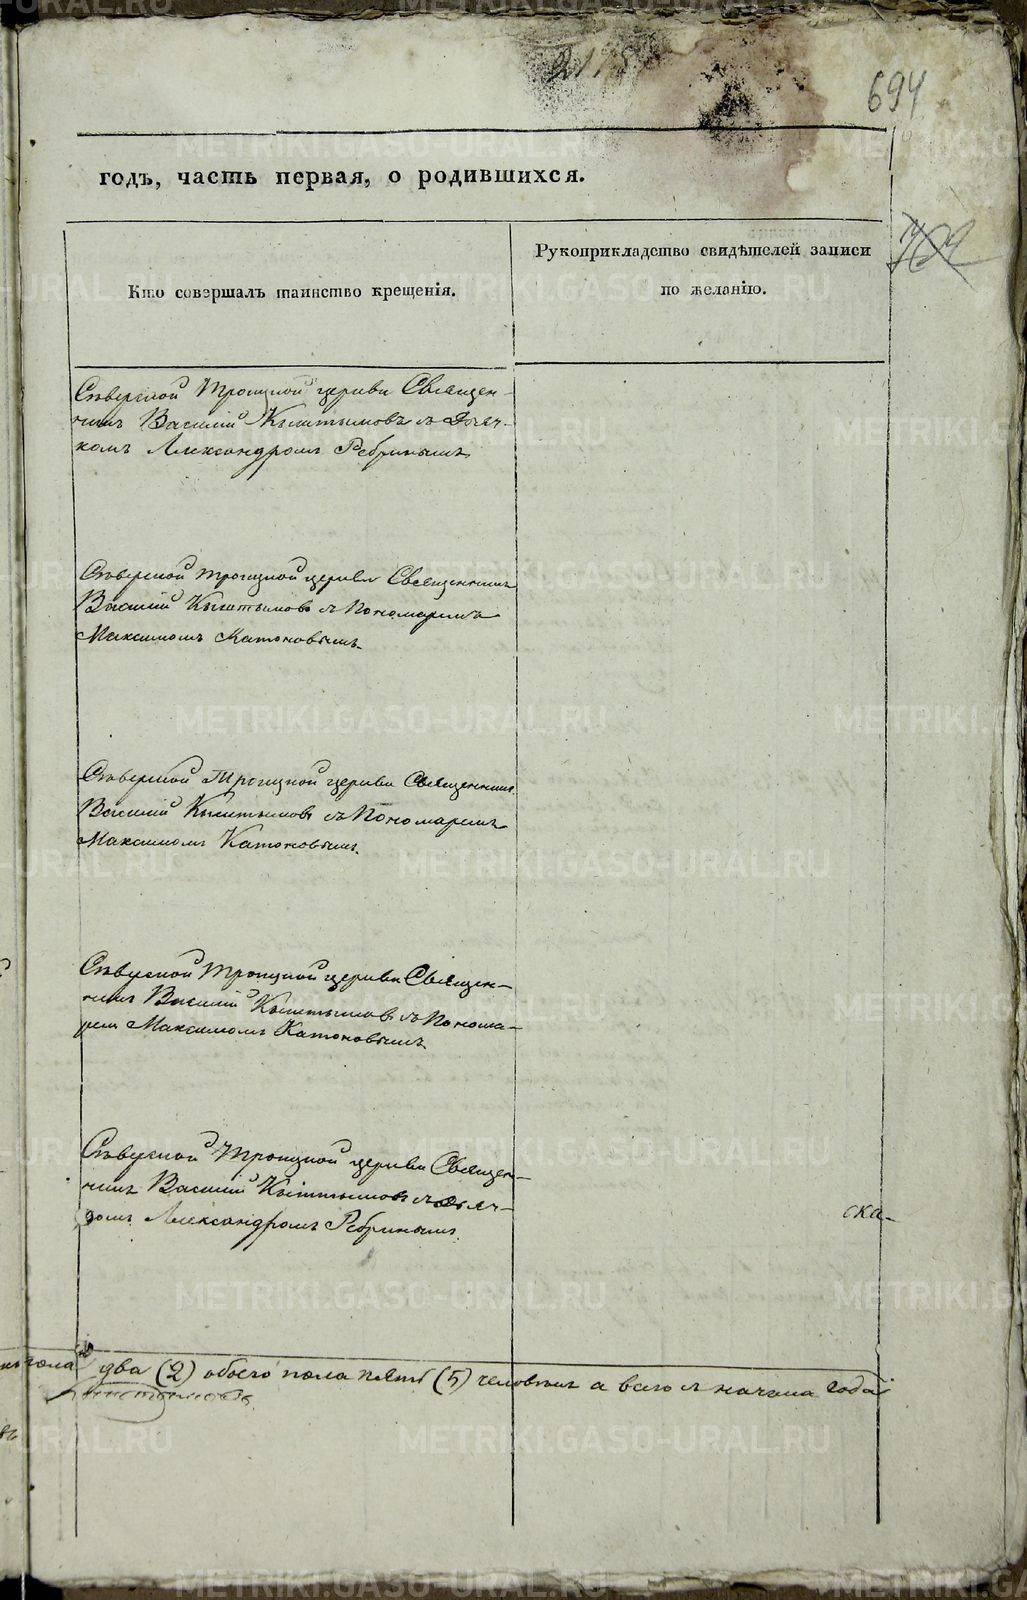 694
годъ, часть первая, о родившихся.
Кто совершалъ таинство крещенія.
Рукоприкладство свидѣтелей записи
по желанію.
Сѣверской Троицкой церкви Священ-
никъ Василій Кыштымовъ съ Дьяч-
комъ Александромъ Ребринымъ
Сѣверской Троицкой церкви Священникъ
Василій Кыштымовъ съ Пономаремъ
Максимомъ Катоновымъ.
Сѣверской Троицкой церкви Священникъ
Василій Кыштымовъ съ Пономаремъ
Максимомъ Катоновымъ.
Сѣверской Троицкой церкви Священ-
никъ Василій Кыштымовъ съ Понома-
ремъ Максимомъ Катоновымъ
Сѣверской Троицкой церкви Священ-
никъ Василій Кыштымовъ съ Дьяч-
комъ Александромъ Ребринымъ
ска-
пола два (2) обоего пола пять (5) человѣкъ а всего съ начала года
METRIKI.GASO-URAL.RU